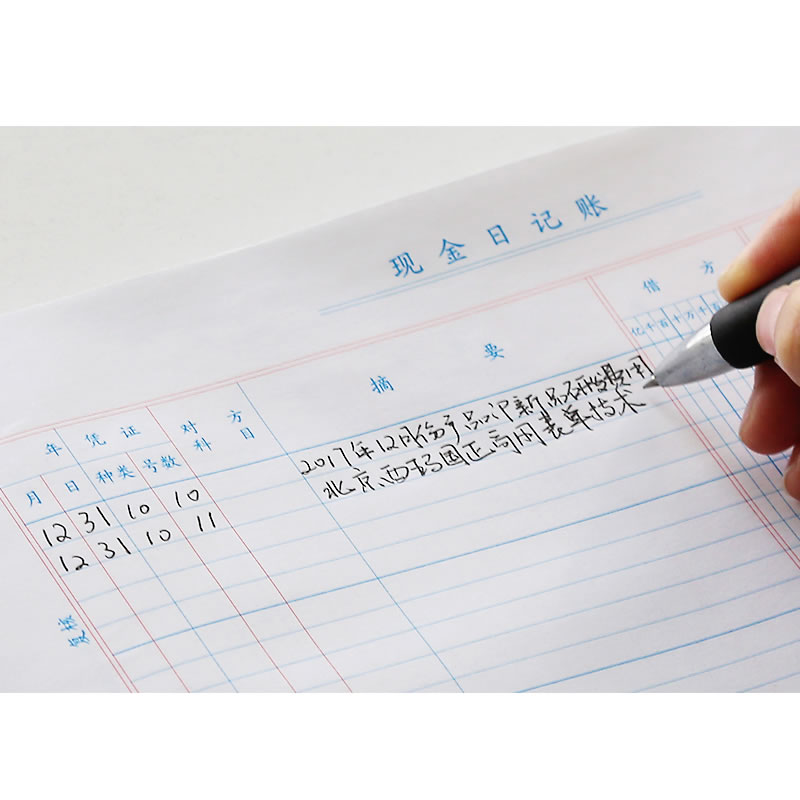 现金日记账
年 凭证 对方科目 摘要 借方
月 日 种类 号数 亿千百十万千百
12 31 10 10 2017年12月份产品
12 31 10 11 北京西玛国正高用表单技术
复核